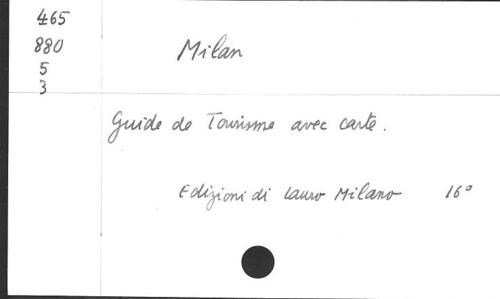 465
880
5
3
Milan
Guide de Tourisme avec carte.
Edizioni di Lauro Milano 16°